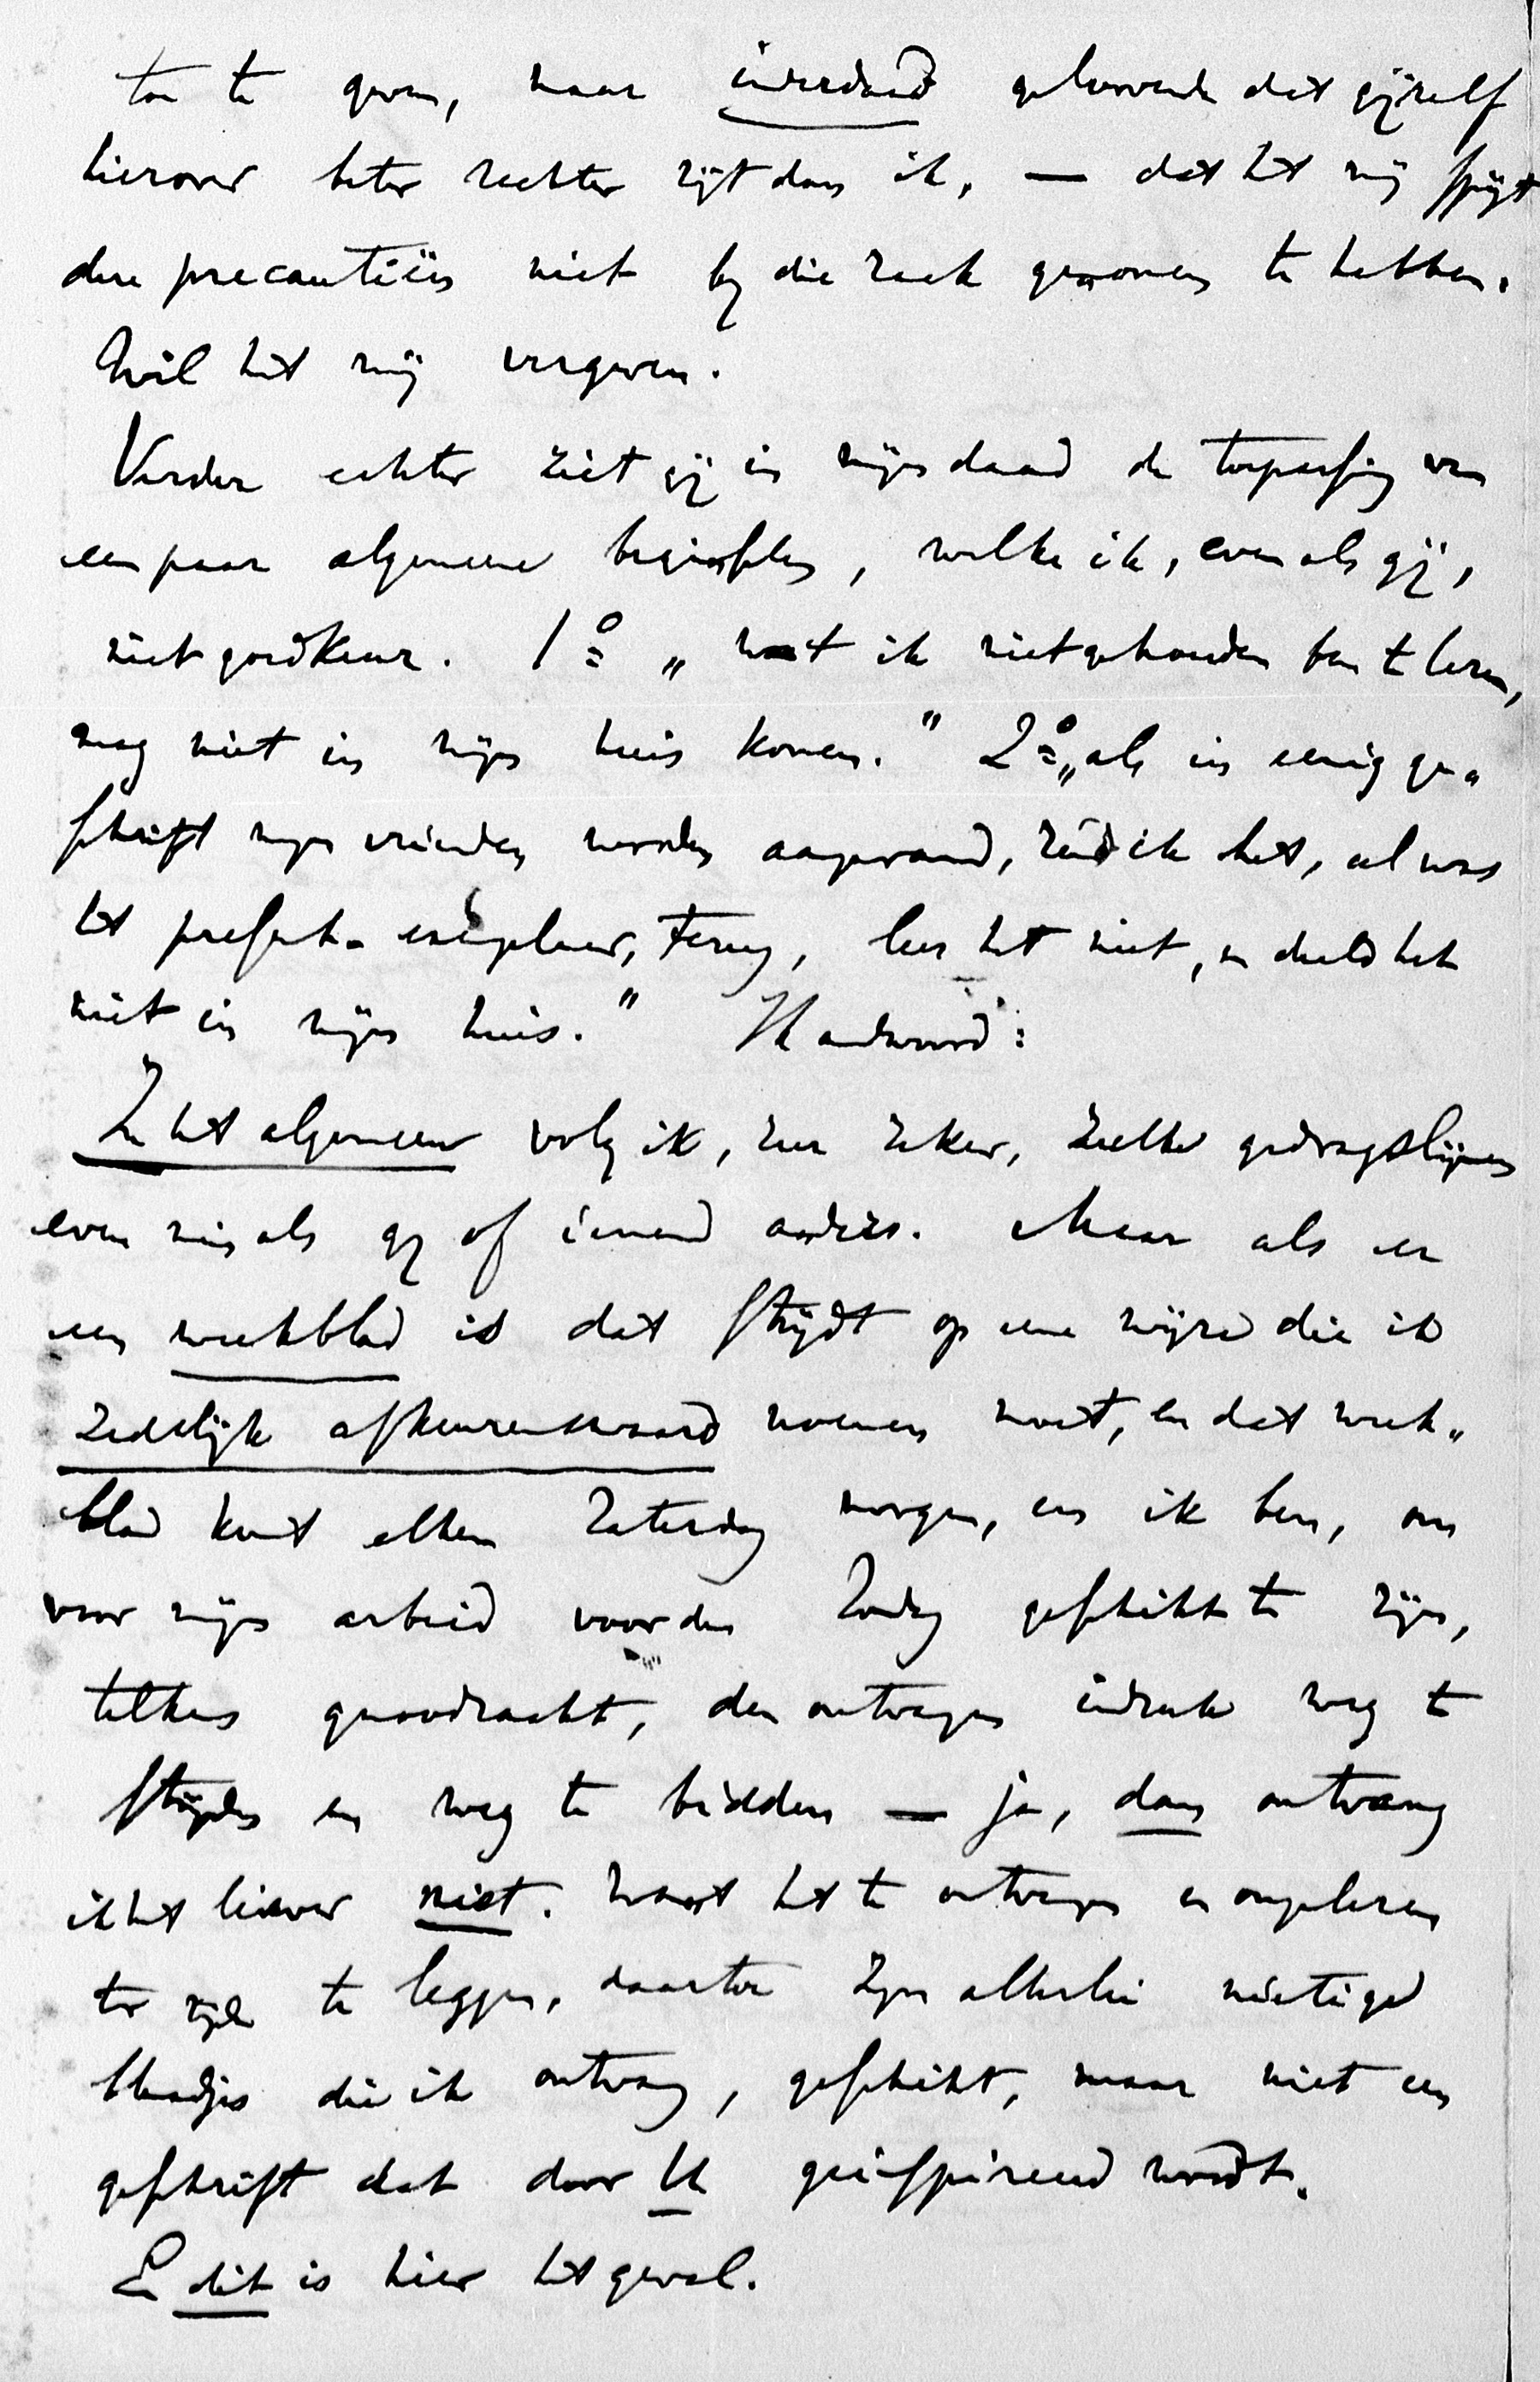 toe te geven, maar inderdaad geloovende dat gijzelf
hierover beter rechter zijt dan ik, — dat het mij spijt
deze precautiën niet bij die zaak genomen te hebben.
Wil het mij vergeven.
Verder echter ziet gij in mijn daad de toepassing van
een paar algemeene beginselen, welke ik, even als gij,
niet goedkeur. 1º „wat ik niet gehouden ben te lezen,
mag niet in mijn huis komen." 2º „als in eenig ge„
schrift mijn vrienden worden aangerand, zend ik het, al was
het present-exemplaar, terug, lees het niet, en duld het
niet in mijn huis." Ik antwoord:
In het algemeen volg ik, zeer zeker, zulke gedragslijnen
even min als gij of iemand anders. Maar als er
een weekblad is dat strijdt op eene wijze die ik
zedelijk afkeurenswaard noemen moet, en dat week„
blad komt elken Zaterdag morgen, en ik ben, om
voor mijn arbeid voor den Zondag geschikt te zijn,
telkens genoodzaakt, den ontvangen indruk weg te
strijden en weg te bidden — ja, dan ontvang
ik het liever niet. Want het te ontvangen en ongelezen
ter zijde te leggen, daartoe zijn allerlei nietige
blaadjes die ik ontvang, geschikt, maar niet een
geschrift dat door U geïnspireerd wordt.
En dit is hier het geval.